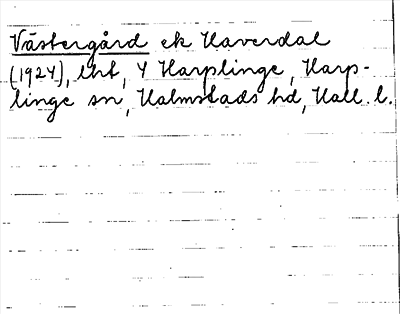 Västergård ek Haverdal
(1924), lht, Y Harplinge, Harp-
linge sn, Halmstads hd, Hall. l.